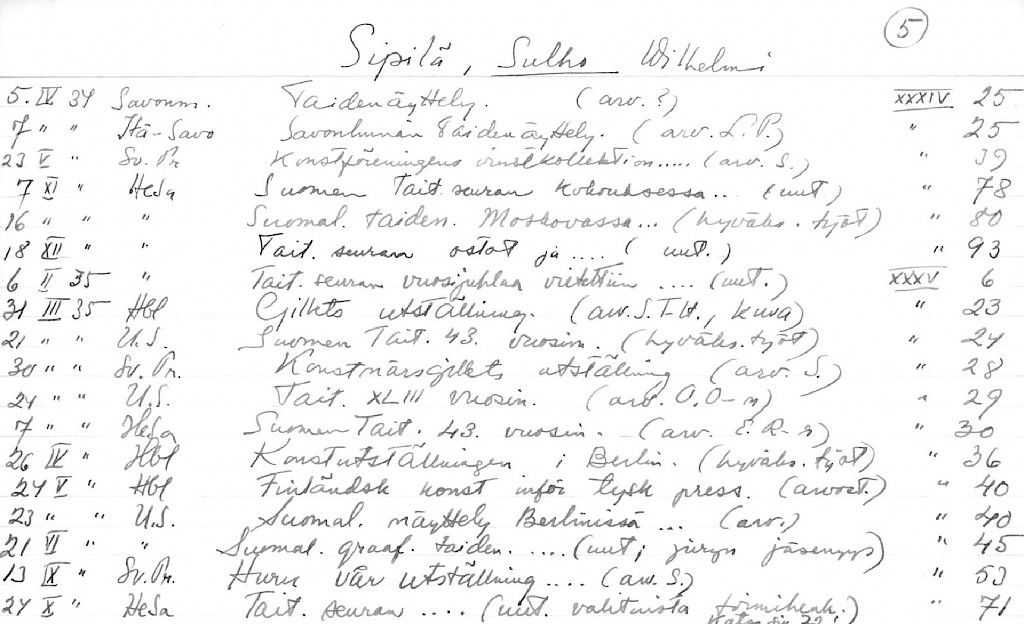 5
Sipilä, Sulho Wilhelmi
5. IV 34 Savonm. Taidenäyttely. (arv.?) XXXIV 25
7 " " Itä-Savo Savonlinnan Taidenäyttely. (arv. L.P.) " 25
23 V " Sv. Pr. Konstföreningens vinstkollektion..... (arv. S.) " 39
7 XI " HeSa Suomen Tait. seuran kokouksessa... (uut) " 78
16 " " " Suomal. taiden. Moskovassa... (hyväks. työt) " 80
18 XII " " Tait. seuran ostot ja .... (uut.) " 93
6 II 35 " Tait. seuran vuosijuhlaa vietettiin .... (uut.) XXXV 6
31 III 35 Hbl Gillets utställning. (arv. S.T-lt., kuva) " 23
21 " " U.S. Suomen Tait. 43. vuosin. (hyväks. työt) " 24
30 " " Sv. Pr. Konstnärsgillets utställning (arv. S.) " 28
24 " " U.S. Tait. XLIII vuosin. (arv. O.O-n) " 29
7 " " HeSa Suomen Tait. 43. vuosin. (arv. E.R-r) " 30
26 IV " Hbl Konstutställningen i Berlin. (hyväks. työt) " 36
24 V " Hbl Finländsk konst inför tysk press. (arvost.) " 40
23 " " U.S. Suomal. näyttely Berliinissä ... (arv.) " 40
21 VI " " Suomal. graaf. taiden. .... (uut; juryn jäsenyys) " 45
13 IX " Sv. Pr. Huru vår utställning .... (arv. S.) " 53
24 X " HeSa Tait. seuran .... (uut. valituista toimihenk.) " 71